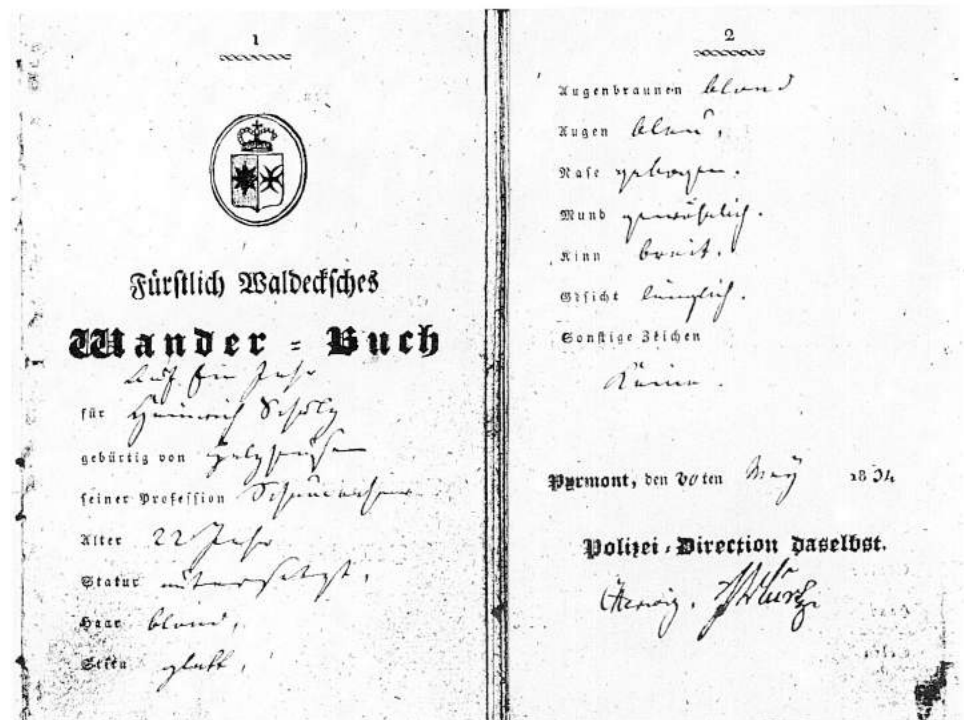 1
Fürstlich Waldecksches
Wander = Buch
Auf Ein Jahr
für Heinrich Scholz
gebürtig von Holzhausen
seiner Profession
Alter 22 Jahr
Statur untersetzt,
Haar blond,
Stirn glatt,
2
Augenbraunen blond
Augen blau,
Nase gebogen.
Mund gewöhnlich.
Kinn breit.
Gesicht länglich.
Sonstige Zeichen
Keine.
Pyrmont, den 20ten May 1834
Polizei = Direction daselbst.